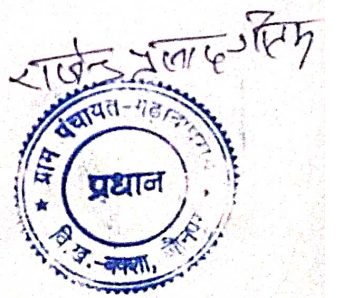 राजेन्द्र प्रसाद गौतम
ग्राम पंचायत-
प्रधान
वि.ख.-बक्शा, जौनपुर